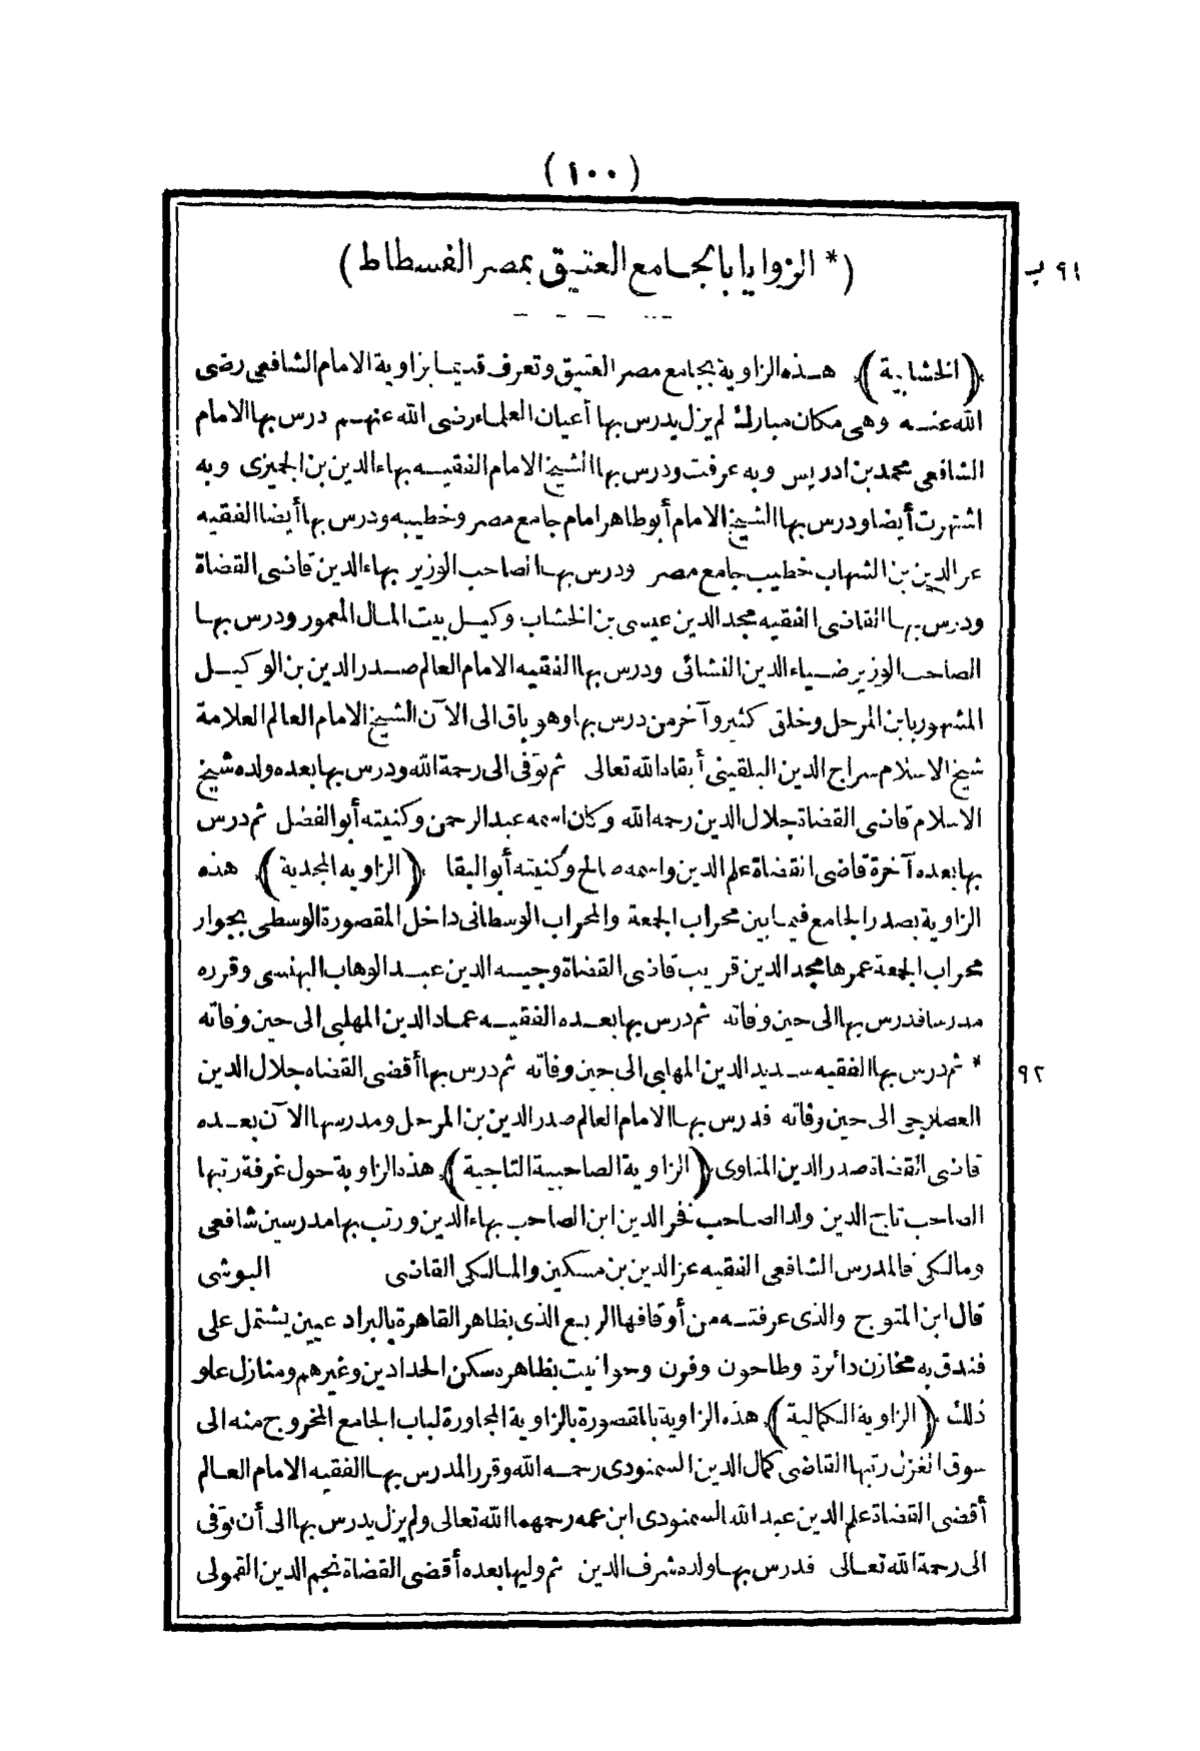 (١٠٠)
(* الزوايا بالجامع العتيق بمصر الفسطاط)
٩١ ب
(الخشابية) هذه الزاوية بجامع مصر العتيق وتعرف قديما بزاوية الامام الشافعى رضى
الله عنه وهى مكان مبارك لم يزل يدرس بها أعيان العلماء رضى الله عنهم درس بها الامام
الشافعى محمد بن ادريس وبه عرفت ودرس بها الشيخ الامام الفقيه بهاء الدين بن الجميزى وبه
اشتهرت أيضا ودرس بها الشيخ الامام أبو طاهر امام جامع مصر وخطيبه ودرس بها أيضا الفقيه
عز الدين بن الشهاب خطيب جامع مصر ودرس بها الصاحب الوزير بهاء الدين قاضى القضاة
ودرس بها القاضى الفقيه مجد الدين عيسى بن الخشاب وكيل بيت المال المعمور ودرس بها
الصاحب الوزير ضياء الدين النشائى ودرس بها الفقيه الامام العالم صدر الدين بن الوكيل
المشهور بابن المرحل وخلق كثير وآخر من درس بها وهو باق الى الآن الشيخ الامام العالم العلامة
شيخ الاسلام سراج الدين البلقينى أبقاه الله تعالى ثم توفى الى رحمة الله ودرس بها بعده ولده شيخ
الاسلام قاضى القضاة جلال الدين رحمه الله وكان اسمه عبد الرحمن وكنيته أبو الفضل ثم درس
بها بعده آخرة قاضى القضاة علم الدين واسمه صالح وكنيته أبو البقا (الزاوية المجدية) هذه
الزاوية بصدر الجامع فيما بين محراب الجمعة والمحراب الوسطانى داخل المقصورة الوسطى بجوار
محراب الجمعة عمرها مجد الدين قريب قاضى القضاة وجيه الدين عبد الوهاب البهنسى وقرره
مدرسا فدرس بها الى حين وفاته ثم درس بها بعده الفقيه عماد الدين المهلبى الى حين وفاته
* ثم درس بها الفقيه سديد الدين المهلبى الى حين وفاته ثم درس بها أقضى القضاه جلال الدين
٩٢
العصلاجى الى حين وفاته فدرس بها الامام العالم صدر الدين بن المرحل ومدرسها الآن بعده
قاضى القضاة صدر الدين المناوى (الزاوية الصاحبية التاجية) هذه الزاوية حول غرفة رتبها
الصاحب تاج الدين ولد الصاحب فخر الدين ابن الصاحب بهاء الدين ورتب بها مدرسين شافعى
ومالكى فالمدرس الشافعى الفقيه عز الدين بن مسكين والمالكى القاضى البوشى
قال ابن المتوج والذى عرفته من أوقافها الربع الذى بظاهر القاهرة بالبراد عيين يشتمل على
فندق به مخازن دائرة وطاحون وفرن وحوانيت بظاهره سكن الحدادين وغيرهم ومنازل علو
ذلك (الزاوية الكمالية) هذه الزاوية بالمقصورة بالزاوية المجاورة لباب الجامع المخروج منه الى
سوق الغزل رتبها القاضى كمال الدين السمنودى رحمه الله وقرر المدرس بها الفقيه الامام العالم
أقضى القضاة علم الدين عبد الله السمنودى ابن عمه رحمهما الله تعالى ولم يزل يدرس بها الى أن توفى
الى رحمة الله تعالى فدرس بها ولده شرف الدين ثم وليها بعده أقضى القضاة نجم الدين القمولى